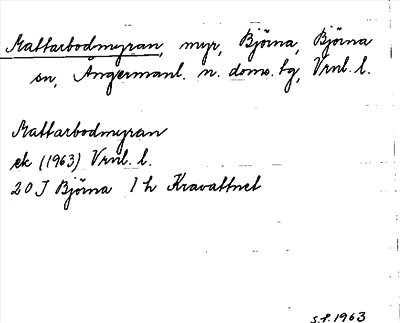 Mattarbodmyran, myr, Björna, Björna
sn, Ångermanl. n. doms. tg, Vrnl. l.
Mattarbodmyran
ek (1963) Vrnl. l.
20 J Björna 1 h Kravattnet
S.P. 1963